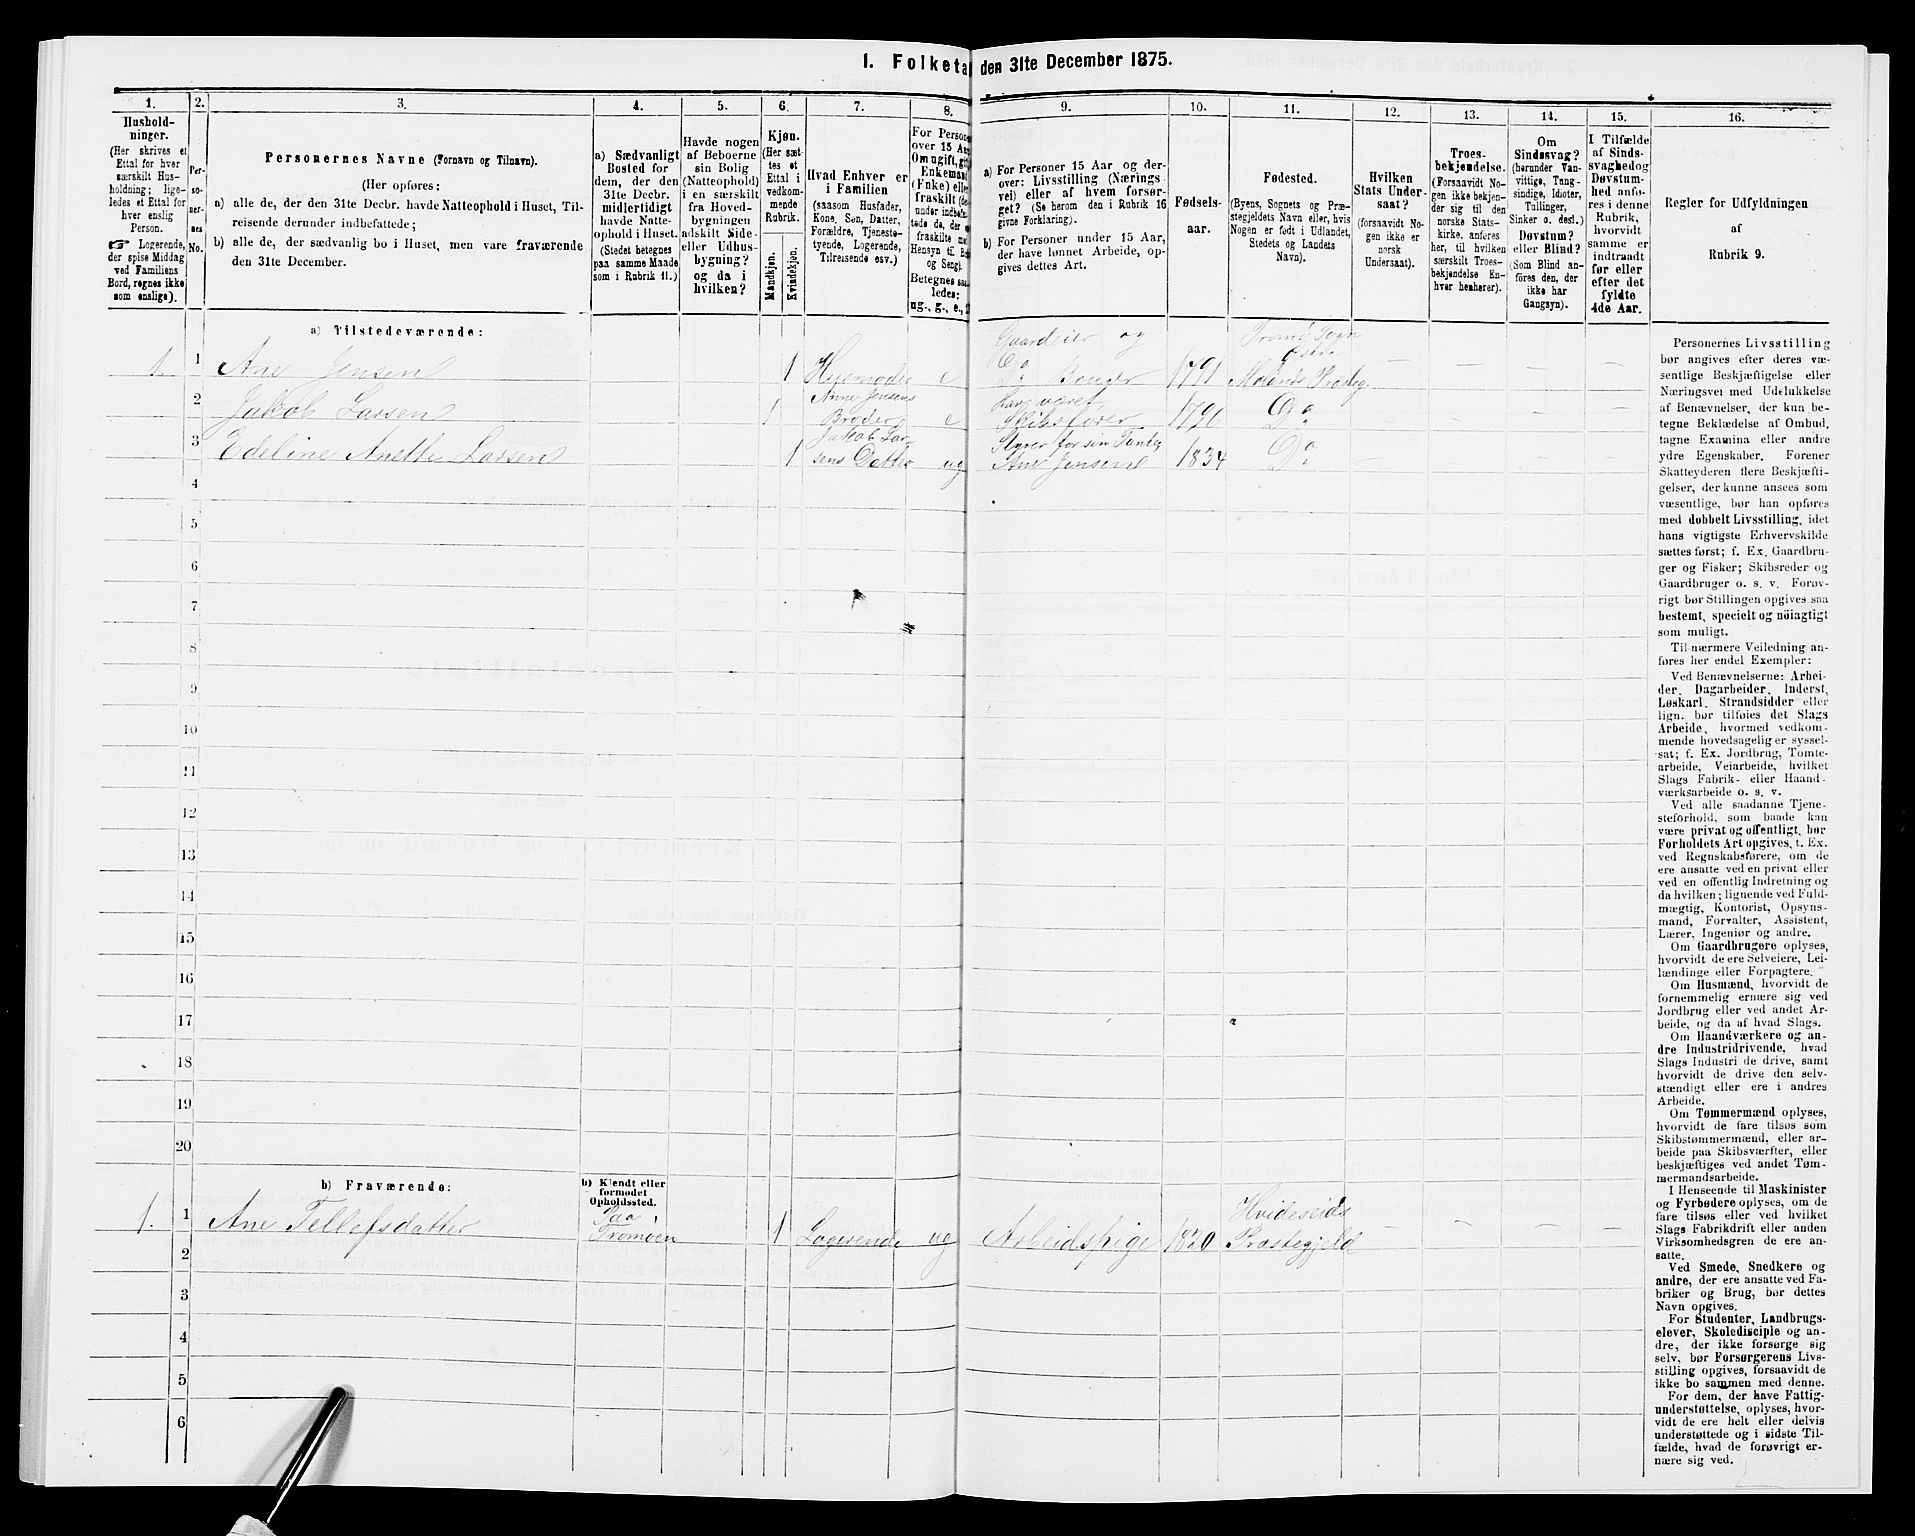 1. Folketal den 31te December 1875.
1. 2. 3. 4. 5. 6. 7. 8. 9. 10. 11. 12. 13. 14. 15. 16.
Hushold-
ninger.
(Her skrives et
Ettal for hver
særskilt Hus-
holdning; lige-
ledes et Ettal for
hver enslig
Person.
☞ Logerende,
der spise Middag
ved Familiens
Bord, regnes ikke
som enslige).
Per-
so-
ner-
nes
No.
Personernes Navne (Fornavn og Tilnavn).
(Her opføres:
a) alle de, der den 31te Decbr. havde Natteophold i Huset, Til-
reisende derunder indbefattede;
b) alle de, der sædvanlig bo i Huset, men vare fraværende
den 31te December.
a) Sædvanligt
Bosted for
dem, der den
31te Decbr.
midlertidigt
havde Natte-
ophold i Huset.
(Stedet betegnes
paa samme Maade
som i Rubrik 11.)
Havde nogen
af Beboerne
sin Bolig
(Natteophold)
i en særskilt
fra Hoved-
bygningen
adskilt Side-
eller Udhus-
bygning?
og da i
hvilken?
Kjøn.
(Her sæt-
tes et
Ettal i
vedkom-
mende
Rubrik.
Mandkjøn.
Kvindekjøn.
Hvad Enhver er
i Familien
(saasom Husfader,
Kone, Søn, Datter,
Forældre, Tjeneste-
tyende, Logerende,
Tilreisende osv.)
For Persone
over 15 Aa
Om ugift, gi
Enkemand
(Enke) elle
fraskilt (de
under indbefa
tede de, der e
fraskilte m
Hensyn til B
og Seng).
Betegnes saa
ledes:
ug., g., e.,
a) For Personer 15 Aar og der-
over: Livsstilling (Nærings-
vei) eller af hvem forsør-
get? (Se herom den i Rubrik 16
givne Forklaring).
b) For Personer under 15 Aar,
der have lønnet Arbeide, op-
gives dettes Art.
Fødsels-
aar.
Fødested.
(Byens, Sognets og Præ-
stegjeldets Navn eller, hvis
Nogen er født i Udlandet,
Stedets og Landets
Navn).
Hvilken
Stats Under-
saat?
(forsaavidt No-
gen ikke er
norsk
Undersaat).
Troes-
bekjendelse.
(Forsaavidt No-
gen ikke bekjen-
der sig til den
norske Stats-
kirke, anføres
her, til hvilken
særskilt Troes-
bekjendelse En-
hver henhører).
Om
Sindssvag?
(herunder Van-
vittige, Tung-
sindige, Idioter,
Tullinger,
Sinker o. desl.)
Døvstum?
eller Blind?
(Som Blind an-
føres den, der
ikke har
Gangsyn).
I Tilfælde
af Sinds-
svaghed og
Døvstum-
hed anfø-
res i denne
Rubrik,
hvorvidt
samme er
indtraadt
før eller
efter det
fyldte
4de Aar.
Regler for Udfyldningen
af
Rubrik 9.
a) Tilstedeværende:
1. 1 Ane Jensen 1 Husmoder e Gaardeier og Do Bruger 1791 Tromø Sogn Østre Molands Præsteg. — — — —
2 Jakob Larsen 1 Anne Jensens Broder e Har været Skibsfører 1796 Do — — — —
3 Edeline Anette Larsen 1 Jakob Larsens Datter ug Styrer for sin Tante Ane Jensen 1834 Do — — — —
4
5
6
7
8
9
10
11
12
13
14
15
16
17
18
19
20
b) Fraværende:
b) Kjendt eller
formodet
Opholdssted.
1. 1 Ane Tellefsdatter Paa Tromøen 1 Logerende ug Arbeidspige 1820 Hvideseids Præstegjeld — — — —
2
3
4
5
6
Personernes Livsstilling
bør angives efter deres væ-
sentlige Beskjæftigelse eller
Næringsvei med Udelukkelse
af Benævnelser, der kun be-
tegne Beklædelse af Ombud,
tagne Examina eller andre
ydre Egenskaber. Forener
Skatteyderen flere Beskjæfti-
gelser, der kunne ansees som
væsentlige, bør han opføres
med dobbelt Livsstilling, idet
hans vigtigste Erhvervskilde
sættes først; f. Ex. Gaardbru-
ger og Fisker; Skibsreder og
Gaardbruger o. s. v. Forøv-
rigt bør Stillingen opgives saa
bestemt, specielt og nöiagtigt
som muligt.
Til nærmere Veiledning an-
føres her endel Exempler:
Ved Benævnelserne: Arbei-
der, Dagarbeider, Inderst,
Løskarl, Strandsidder eller
lign. bør tilføies det Slags
Arbeide, hvormed vedkom-
mende hovedsagelig er syssel-
sat; f. Ex. Jordbrug, Tomte-
arbeide, Veiarbeide, hvilket
Slags Fabrik- eller Haand-
værksarbeide o. s. v.
Ved alle saadanne Tjene-
steforhold, som baade kan
være privat og offentligt, bør
Forholdets Art opgives, t. Ex.
ved Regnskabsførere, om de
ere ansatte ved en privat eller
ved en offentlig Indretning og
da hvilken; lignende ved Fuld-
mægtig, Kontorist, Opsyns-
mand, Forvalter, Assistent,
Lærer, Ingeniør og andre.
Om Gaardbrugere oplyses,
hvorvidt de ere Selveiere, Lei-
lændinge eller Forpagtere.
Om Husmænd, hvorvidt de
fornemmelig ernære sig ved
Jordbrug eller ved andet Ar-
beide, og da af hvad Slags.
Om Haandværkere og an-
dre Industridrivende, hvad
Slags Industri de drive, samt
hvorvidt de drive den selv-
stændigt eller ere i andres
Arbeide.
Om Tømmermænd oplyses,
hvorvidt de fare tilsøs som
Skibstømmermænd, eller ar-
beide paa Skibsværfter, eller
beskjæftiges ved andet Tøm-
mermandsarbeide.
I Henseende til Maskinister
og Fyrbødere oplyses, om de
fare tilsøs eller ved hvilket
Slags Fabrikdrift eller anden
Virksomhedsgren de ere an-
satte.
Ved Smede, Snedkere og
andre, der ere ansatte ved Fa-
briker og Brug, bør dettes
Navn opgives.
For Studenter, Landbrugs-
elever, Skoledisciple og an-
dre, der ikke forsørge sig
selv, bør Forsørgerens Livs-
stilling opgives, forsaavidt de
ikke bo sammen med denne.
For dem, der have Fattig-
understøttelse, oplyses, hvor-
vidt de ere helt eller delvis
understøttede og i sidste Til-
fælde, hvad de forøvrigt er-
nære sig ved.